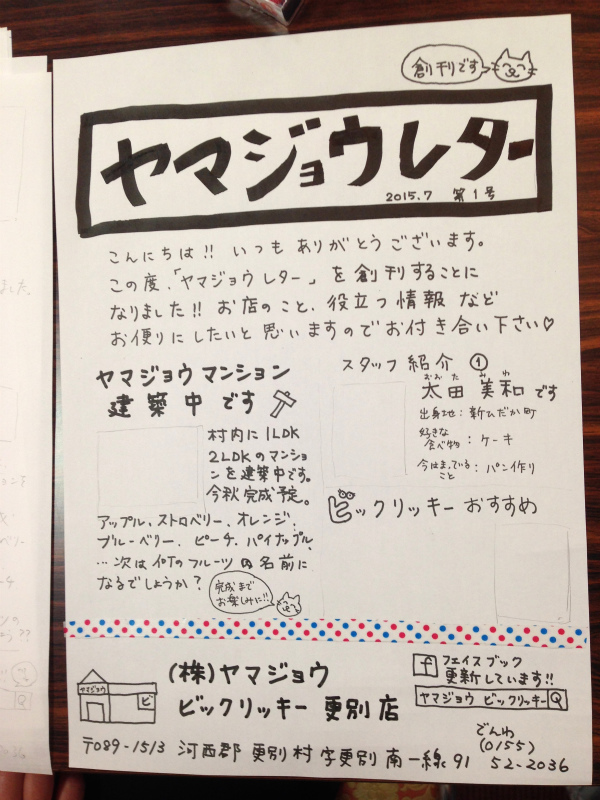 創刊です
ヤマジョウレター
2015.7 第1号
こんにちは!! いつも ありがとうございます。
この度、「ヤマジョウレター」を創刊することに
なりました!! お店のこと、役立つ情報 など
お便りにしたいと思いますのでお付き合い下さい♡
ヤマジョウ マンション
建築中です
村内に1LDK
2LDKのマンショ
ンを建築中です。
今秋完成予定。
アップル、ストロベリー、オレンジ、
ブルーベリー、ピーチ、パイナップル、
…次は何のフルーツの名前に
なるでしょうか?
完成まで
お楽しみに!!
スタッフ紹介 ①
おおた みわ
太田 美和です
出身地:新ひだか町
好きな
食べ物:ケーキ
今はまっている
こと:パン作り
ビックリッキー おすすめ
ヤマジョウ
ビ
(株)ヤマジョウ
ビックリッキー 更別店
f フェイスブック
更新しています!!
ヤマジョウ ビックリッキー Q
〒089-1513 河西郡 更別村 字更別 南一線91
でんわ
(0155)
52-2036